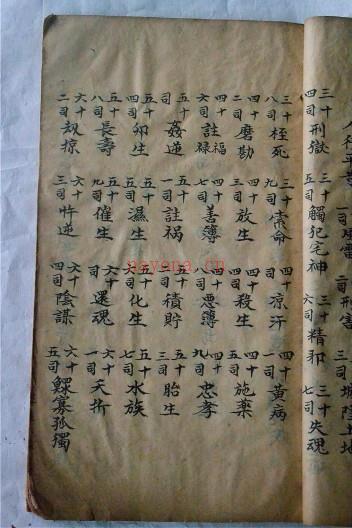 三司城隍土地
三十四司刑獄 三十五司觸犯宅神 三十六司精邪 三十七司失魂
三十八司枉死 三十九司索命 四十司凉汗 四十一司黃病
四十二司磨勘 四十三司放生 四十四司殺生 四十五司施藥
四十六司註福祿 四十七司善簿 四十八司悪簿 四十九司忠孝
五十司姦逆 五十一司註祸 五十二司積貯 五十三司胎生
五十四司卯生 五十五司濕生 五十六司化生 五十七司水族
五十八司長壽 五十九司催生 六十司還魂 六十一司夭折
六十二司刼掠 六十三司忤逆 六十四司陰謀 六十五司鰥寡孤獨